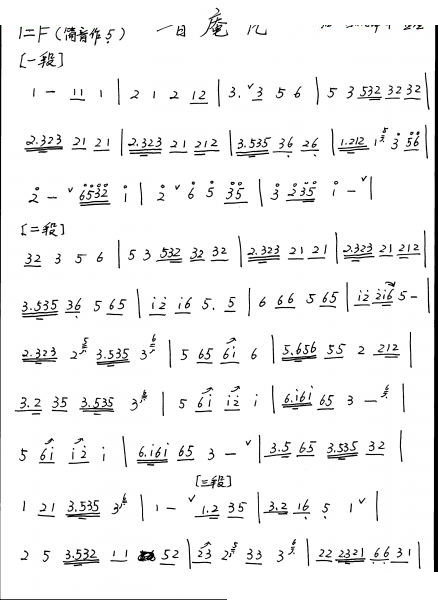 1=F (筒音作5)
[一段]
1 - 11 1 | 2 1 2 12 | 3. ˇ 3 5 6 | 5 3 532 32 32 |
2.323 21 21 | 2.323 21 212 | 3.535 36 26 | 1.212 1 3 56
2 - ˇ 6532 1 | 2 ˇ 6 5 35 | 3 235 1 - ˇ |
[二段]
32 3 5 6 | 5 3 532 32 32 | 2.323 21 21 | 2.323 21 212 |
3.535 36 5 65 | 12 16 5. 5 | 6 66 5 65 | 12 216 5 -
2.323 2 3.535 3 | 5 65 61 6 | 5.656 55 2 212 |
3.2 35 3.535 3 | 5 61 12 1 | 6.161 65 3 - |
5 61 12 1 | 6.161 65 3 - ˇ | 3.5 65 3.535 32 |
[三段]
1 21 3.535 3 | 1 - ˇ 1.2 35 | 3.2 16 5 1 ˇ |
2 5 3.532 11 52 | 23 2 33 3 | 22 2321 66 31 |